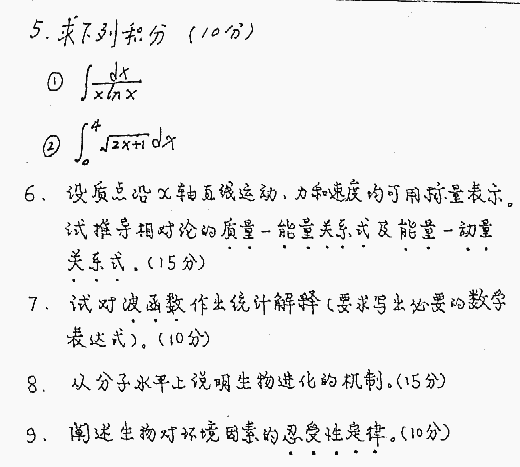 5. 求下列积分 (10分)
① ∫ dx/(x ln x)
② ∫₀⁴ √(2x+1) dx
6、设质点沿x轴直线运动，力和速度均可用标量表示。
试推导相对论的质量—能量关系式及能量—动量
关系式。(15分)
7、试对波函数作出统计解释(要求写出必要的数学
表达式)。(10分)
8、从分子水平上说明生物进化的机制。(15分)
9、阐述生物对环境因素的忍受性定律。(10分)